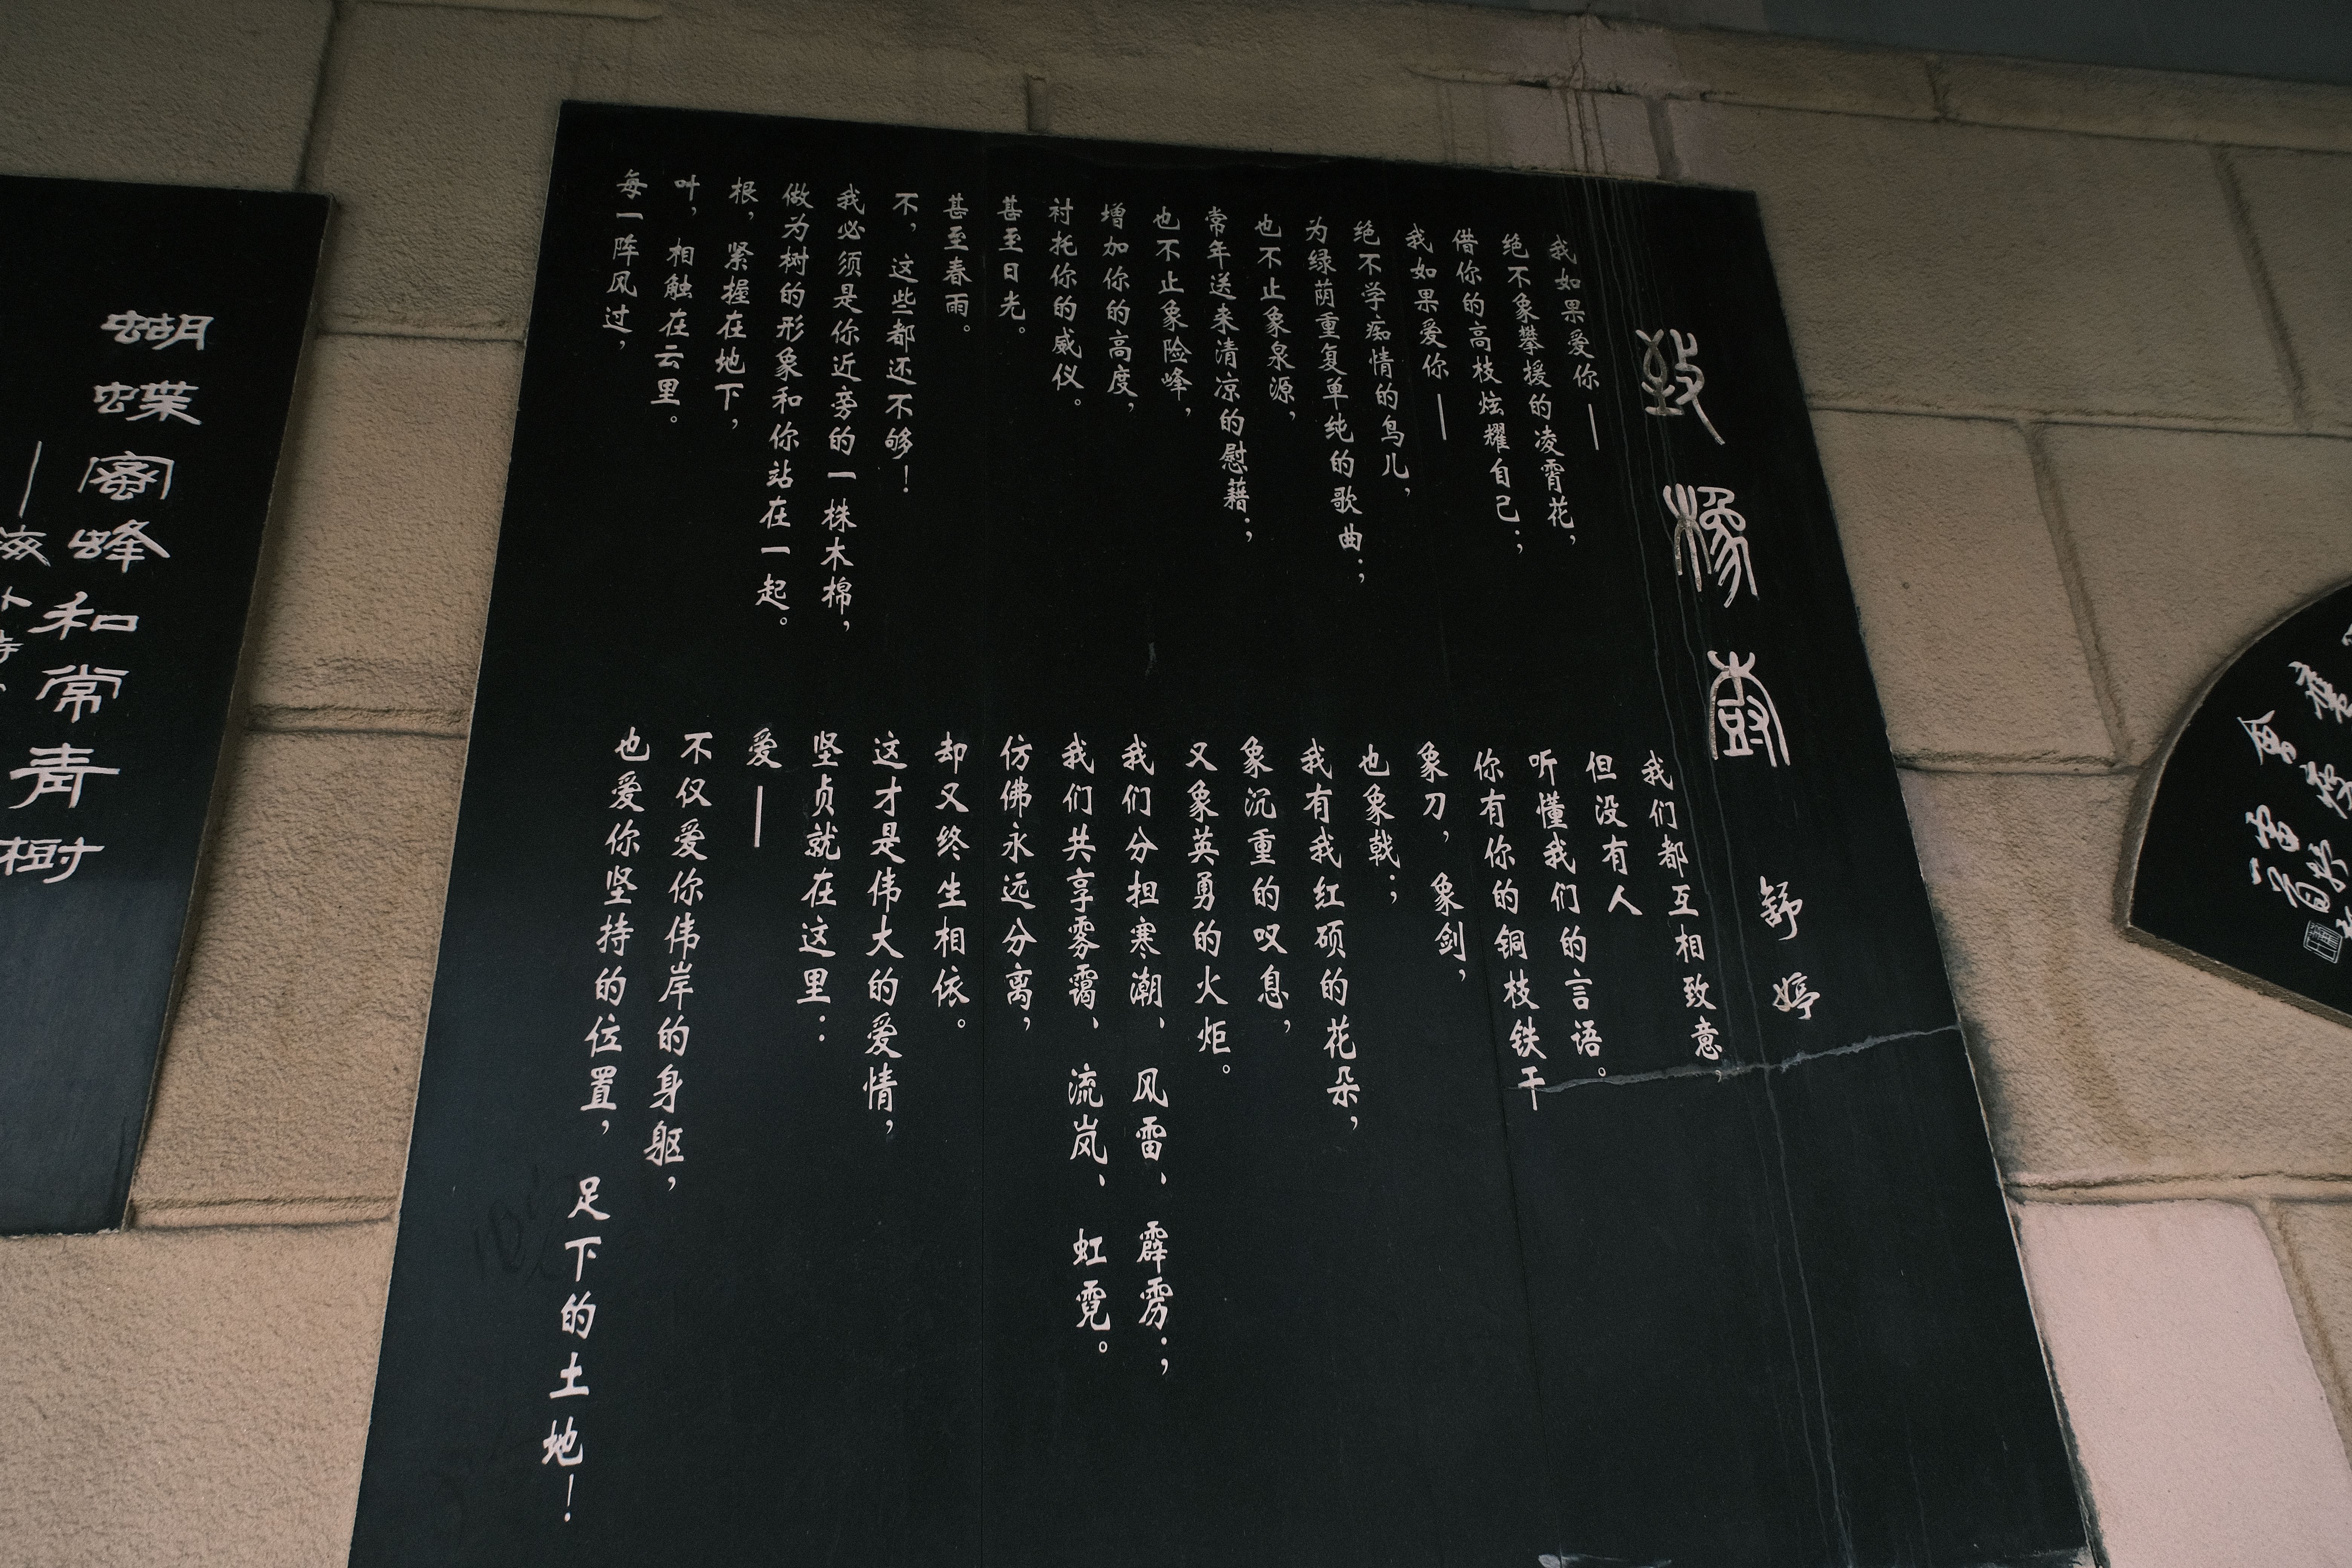 致橡树
舒婷
我如果爱你——
绝不象攀援的凌霄花，
借你的高枝炫耀自己；
我如果爱你——
绝不学痴情的鸟儿，
为绿荫重复单纯的歌曲；
也不止象泉源，
常年送来清凉的慰藉；
也不止象险峰，
增加你的高度，
衬托你的威仪。
甚至日光。
甚至春雨。
不，这些都还不够！
我必须是你近旁的一株木棉，
做为树的形象和你站在一起。
根，紧握在地下，
叶，相触在云里。
每一阵风过，
我们都互相致意，
但没有人
听懂我们的言语。
你有你的铜枝铁干
象刀，象剑，
也象戟；
我有我红硕的花朵，
象沉重的叹息，
又象英勇的火炬。
我们分担寒潮、风雷、霹雳；
我们共享雾霭、流岚、虹霓。
仿佛永远分离，
却又终生相依。
这才是伟大的爱情，
坚贞就在这里：
爱——
不仅爱你伟岸的身躯，
也爱你坚持的位置，足下的土地！
蝴蝶蜜蜂和常青树
——海外诗